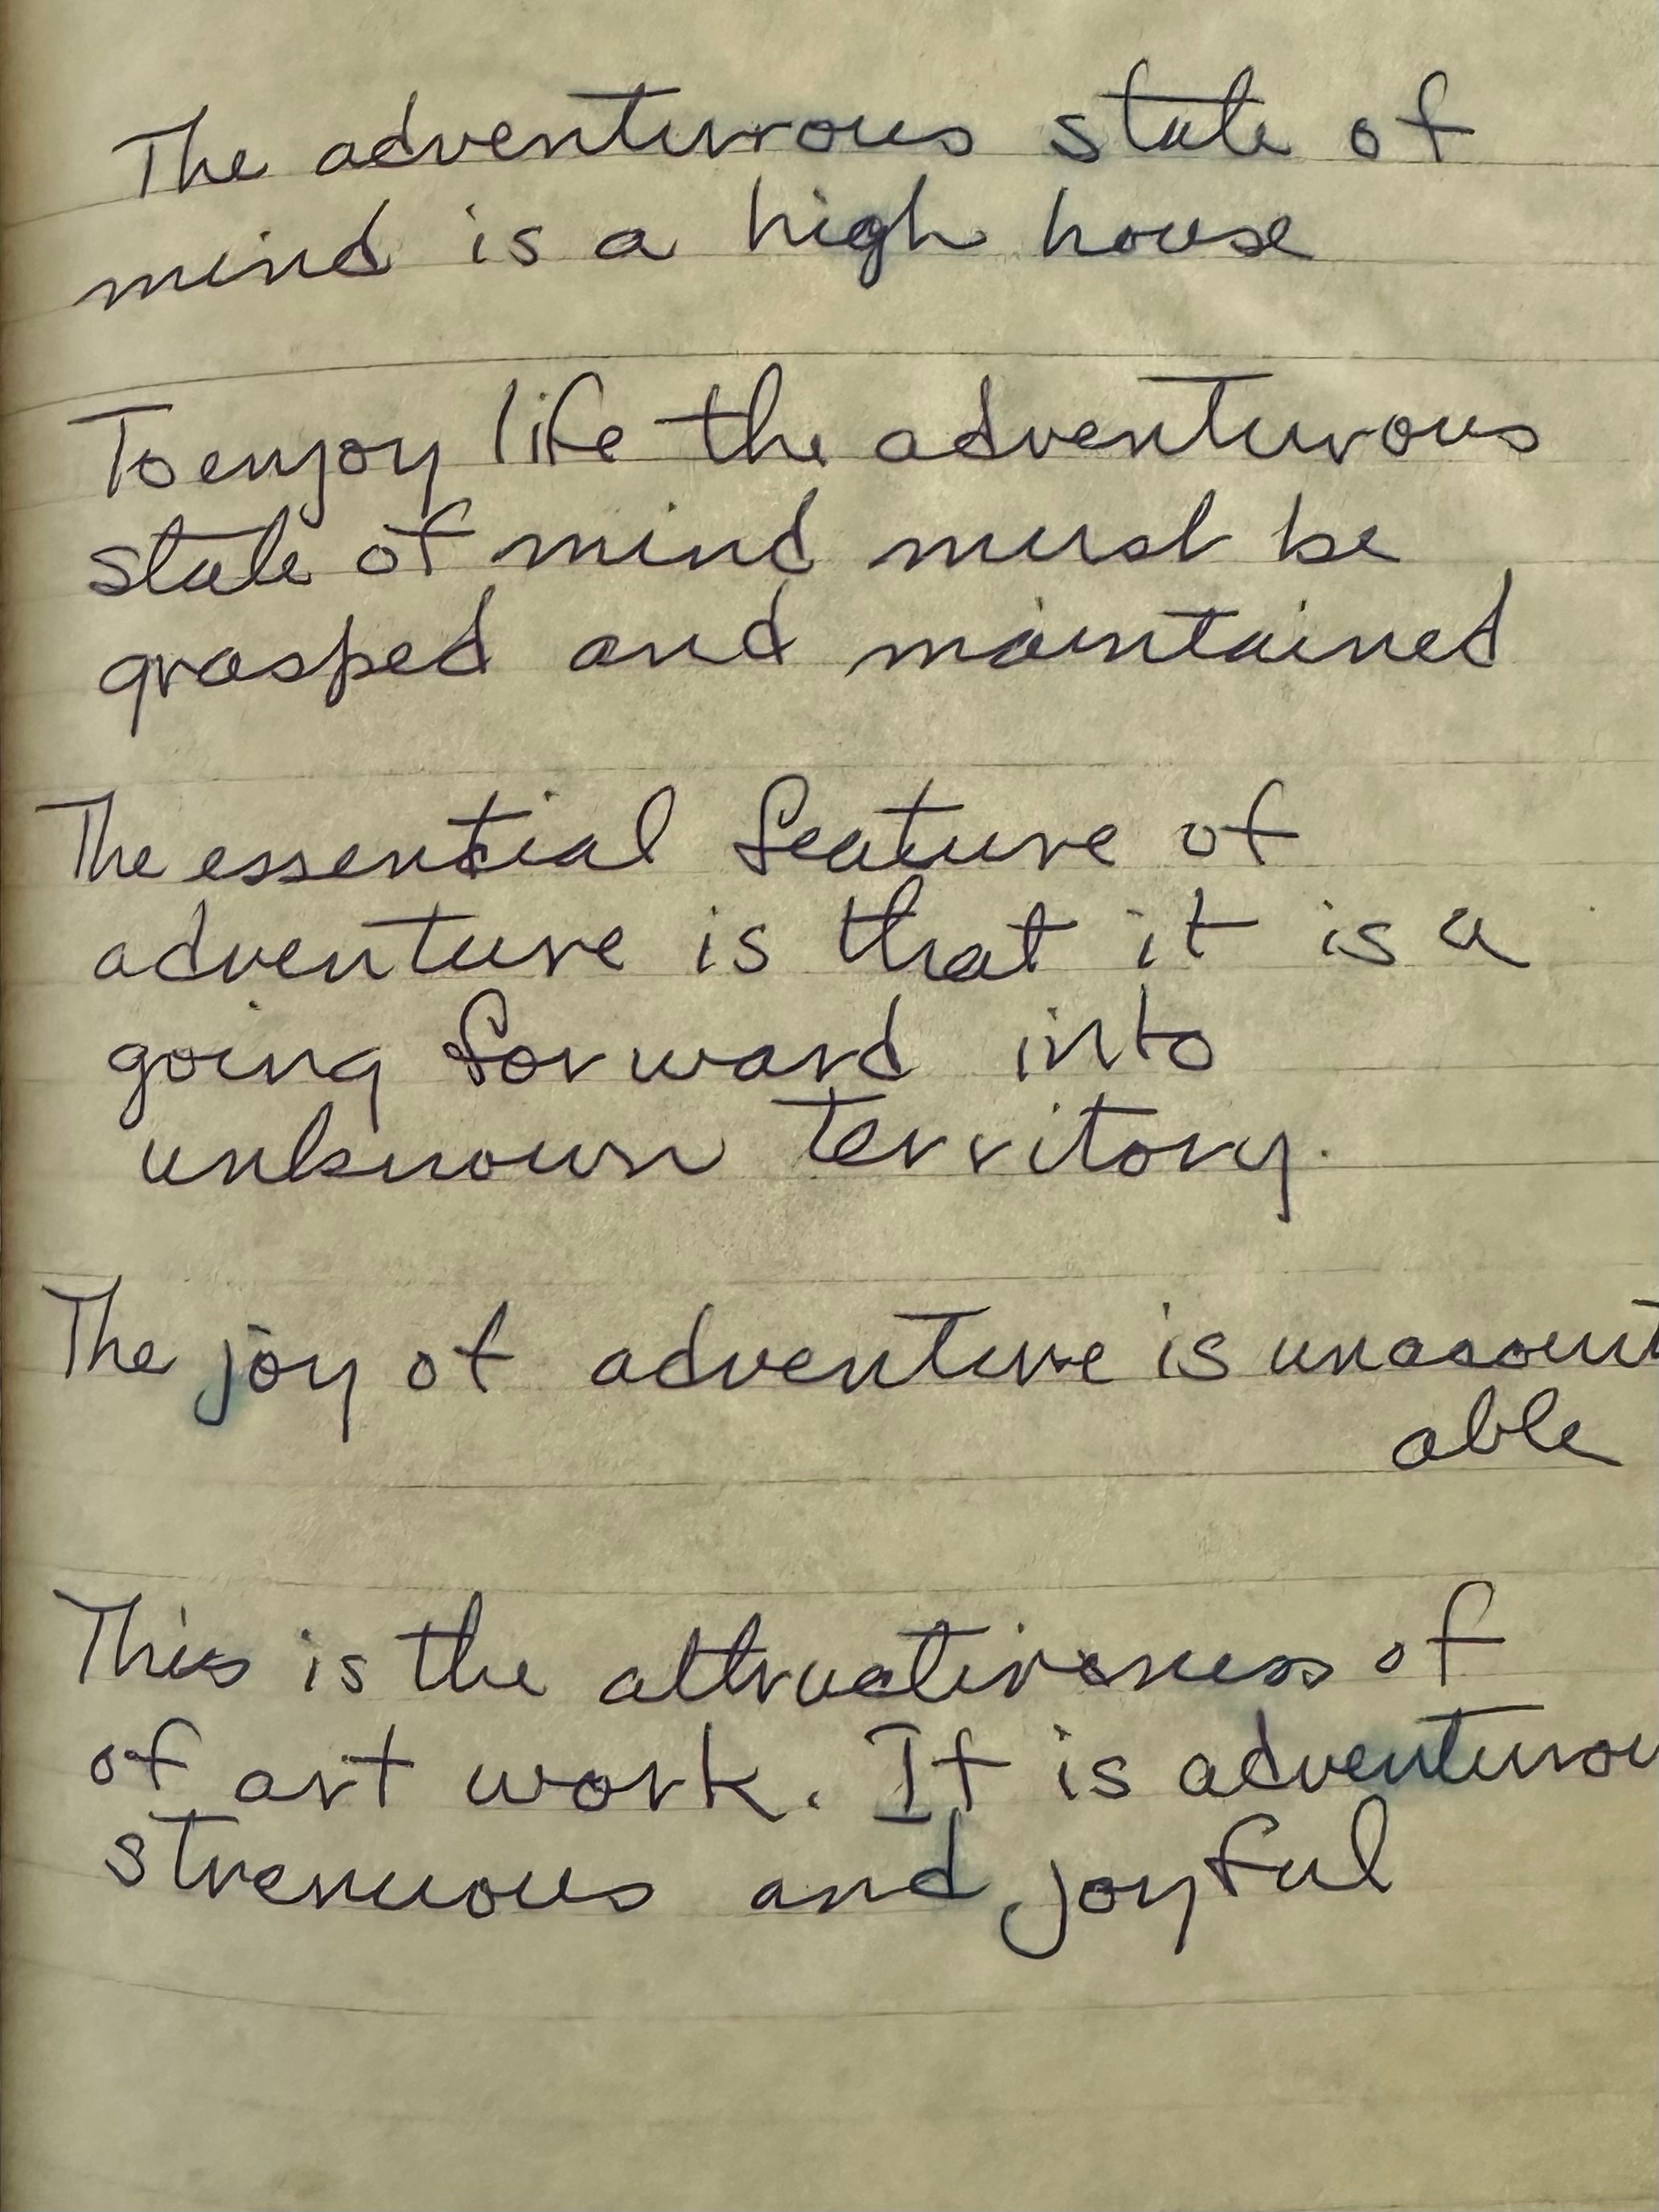 The adventurous state of
mind is a high house
To enjoy life the adventurous
state of mind must be
grasped and maintained
The essential feature of
adventure is that it is a
going forward into
unknown territory.
The joy of adventure is unaccount
able
This is the attractiveness of
of art work. It is adventurou
strenuous and joyful